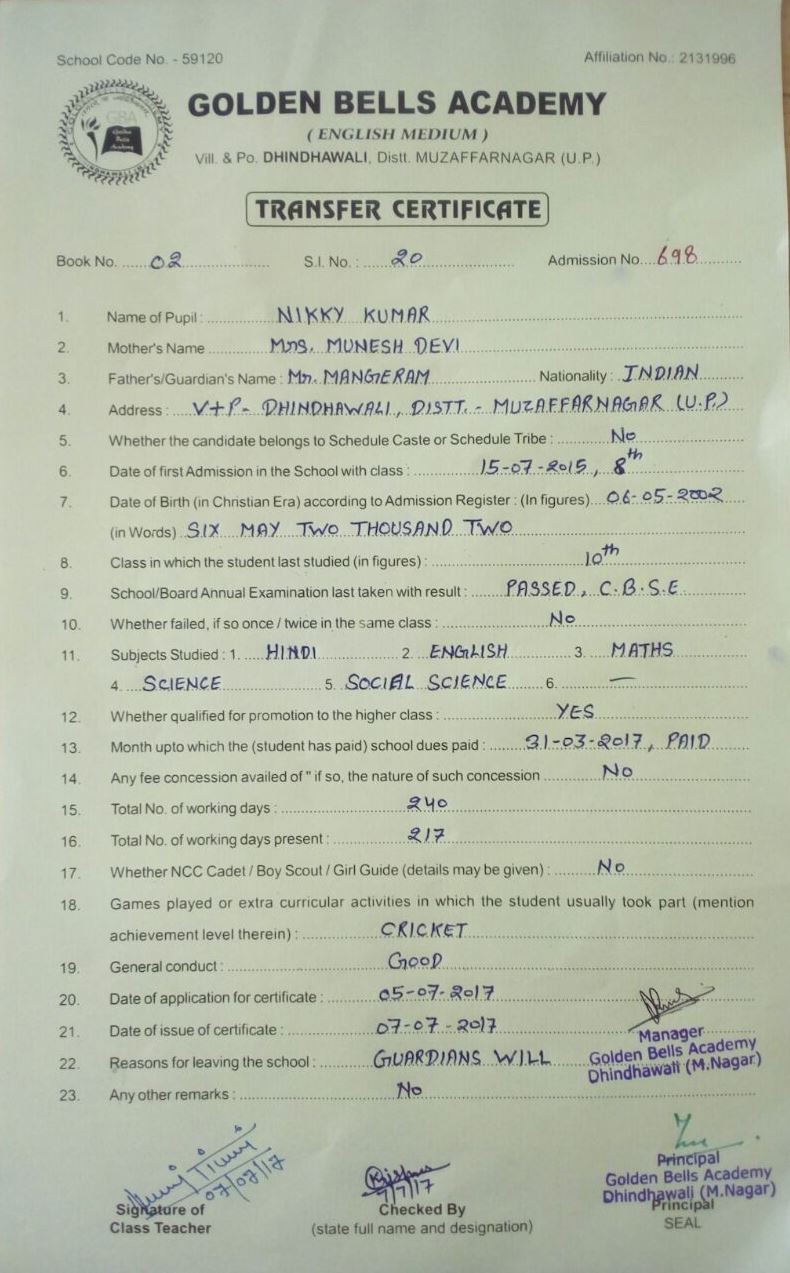 School Code No. - 59120 Affiliation No.: 2131996
GBA
Golden Bells Academy
GOLDEN BELLS ACADEMY
( ENGLISH MEDIUM )
Vill. & Po. DHINDHAWALI, Distt. MUZAFFARNAGAR (U.P.)
TRANSFER CERTIFICATE
Book No. 02 S.I. No. : 20 Admission No. 698
1. Name of Pupil : NIKKY KUMAR
2. Mother's Name MRS. MUNESH DEVI
3. Father's/Guardian's Name : Mr. MANGERAM Nationality : INDIAN
4. Address : V+P- DHINDHAWALI, DISTT.- MUZAFFARNAGAR (U.P.)
5. Whether the candidate belongs to Schedule Caste or Schedule Tribe : No
6. Date of first Admission in the School with class : 15-07-2015, 8th
7. Date of Birth (in Christian Era) according to Admission Register : (In figures) 06-05-2002
(in Words) SIX MAY TWO THOUSAND TWO
8. Class in which the student last studied (in figures) : 10th
9. School/Board Annual Examination last taken with result : PASSED, C.B.S.E
10. Whether failed, if so once / twice in the same class : No
11. Subjects Studied : 1. HINDI 2. ENGLISH 3. MATHS
4. SCIENCE 5. SOCIAL SCIENCE 6. —
12. Whether qualified for promotion to the higher class : YES
13. Month upto which the (student has paid) school dues paid : 31-03-2017, PAID
14. Any fee concession availed of " if so, the nature of such concession No
15. Total No. of working days : 240
16. Total No. of working days present : 217
17. Whether NCC Cadet / Boy Scout / Girl Guide (details may be given) : No
18. Games played or extra curricular activities in which the student usually took part (mention
achievement level therein) : CRICKET
19. General conduct : GOOD
20. Date of application for certificate : 05-07-2017
21. Date of issue of certificate : 07-07-2017
22. Reasons for leaving the school : GUARDIANS WILL
23. Any other remarks : No
Manager
Golden Bells Academy
Dhindhawali (M.Nagar)
07/07/17
Signature of
Class Teacher
7/7/17
Checked By
(state full name and designation)
Principal
Golden Bells Academy
Dhindhawali (M.Nagar)
Principal
SEAL